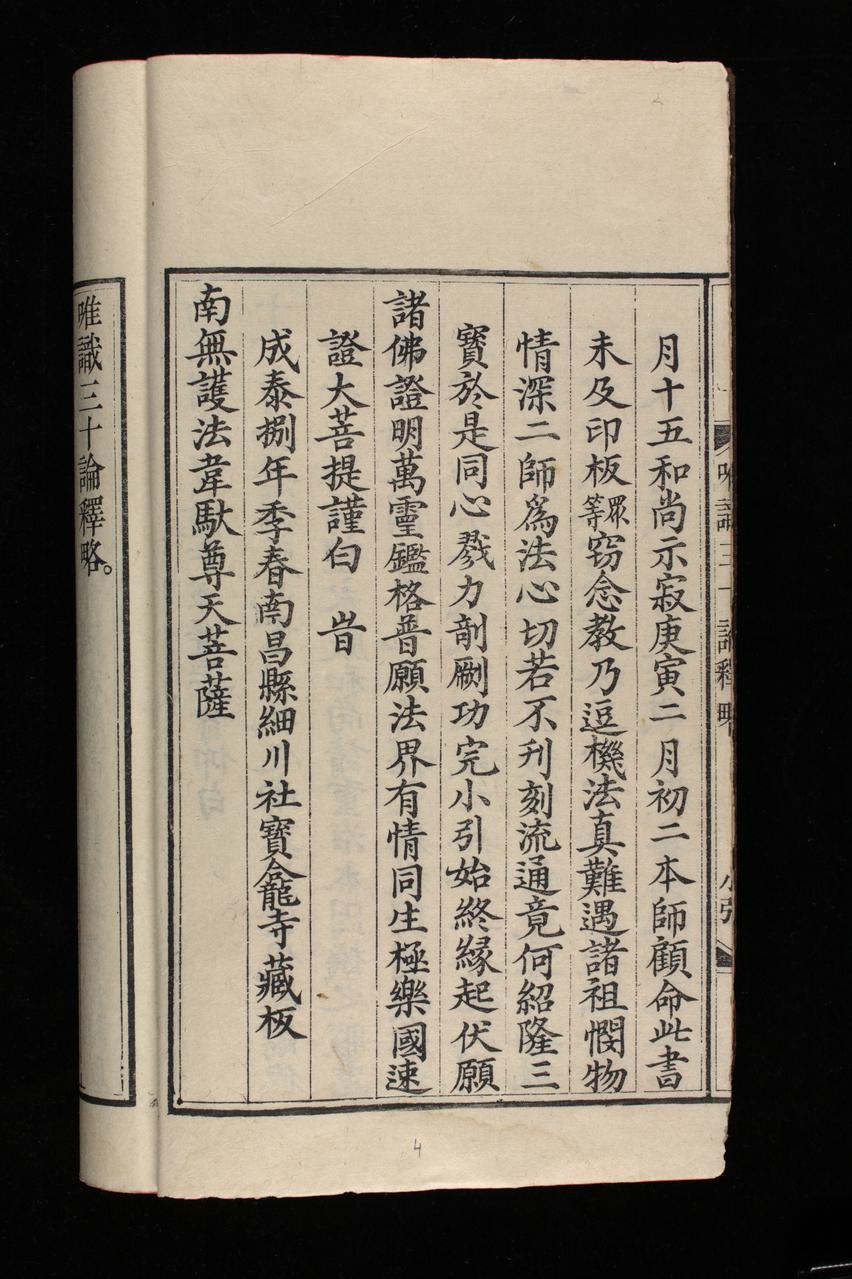 唯識三十論釋略
小引
月十五和尚示寂庚寅二月初二本師顧命此書
未及印板眾等窈念教乃逗機法真難遇諸祖憫物
情深二師為法心切若不刋刻流通竟何紹隆三
寶於是同心戮力剞劂功完小引始終緣起伏願
諸佛證明萬靈鑑格普願法界有情同生極樂國速
證大菩提謹白 旹
成泰捌年季春南昌縣細川社寶龕寺藏板
南無護法韋馱尊天菩薩
唯識三十論釋略。
4